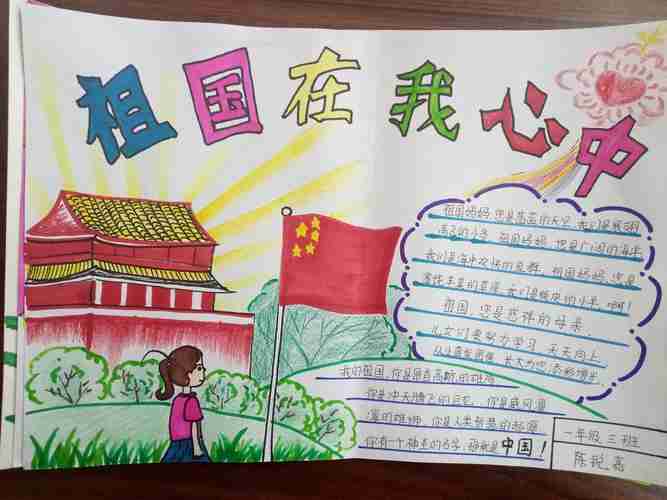 祖国在我心中
祖国妈妈,您是蓝蓝的天空,我们是展翅
高飞的小鸟,祖国妈妈,您是广阔的海洋
我们是海中欢快的鱼群,祖国妈妈,您是
我们是绿 的小禾,啊!
祖国,您是慈祥的母亲
儿女们要努力学习 天天向上
长大为您添彩增光
我的祖国,你是屹
你是冲天腾飞的巨龙,你是威风凛
凛的雄狮,你是人类智慧的
你有一个神圣的名字,那就是中国!
一年级三班
陈锐嘉